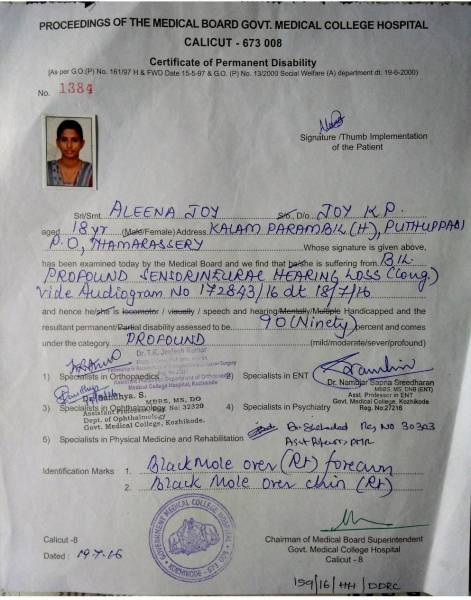 PROCEEDINGS OF THE MEDICAL BOARD GOVT. MEDICAL COLLEGE HOSPITAL
CALICUT - 673 008
Certificate of Permanent Disability
[As per G.O.(P) No. 161/97 H & FWD Date 15-5-97 & G.O. (P) No. 13/2000 Social Welfare (A) department dt. 19-6-2000)
No. 1384
Signature /Thumb Implementation
of the Patient
Sri/Smt. ALEENA JOY S/o, D/o. JOY K P.
aged 18 yr (Male/Female) Address. KALAM PARAMBIL (H), PUTHUPPADI
P.O, THAMARASSERY Whose signature is given above,
has been examined today by the Medical Board and we find that he/she is suffering from B/L
PROFOUND SENSORINEURAL HEARING LOSS (Cong.)
Vide Audiogram No 172843/16 dt 18/7/16
and hence he/she is locomotor / visually / speech and hearing/Mentally/Multiple Handicapped and the
resultant permanent/Partial disability assessed to be 90 (Ninety) percent and comes
under the category PROFOUND (mild/moderate/sever/profound)
Dr. T.K. Jeejesh Kumar
Medical College Hospital, Kozhikode
1) Specialists in Orthopaedics 2) Specialists in ENT
Dr. Nambiar Sapna Sreedharan
MBBS, MS, DNB (ENT)
Asst. Professor in ENT
Govt. Medical College, Kozhikode
Reg. No:27216
MBBS, MS, DO
3) Specialists in Ophthalmology 4) Specialists in Psychiatry
No: 32320
Dept. of Ophthalmology
Govt. Medical College, Kozhikode.
5) Specialists in Physical Medicine and Rehabilitation
Reg No 30303
Identification Marks 1. Black Mole over (Rt) forearm
2. Black Mole over chin (Rt)
GOVERNMENT MEDICAL COLLEGE HOSPITAL
Calicut -8
Dated : 19.7.16
Chairman of Medical Board Superintendent
Govt. Medical College Hospital
Calicut - 8
159/16/HH/DDRC